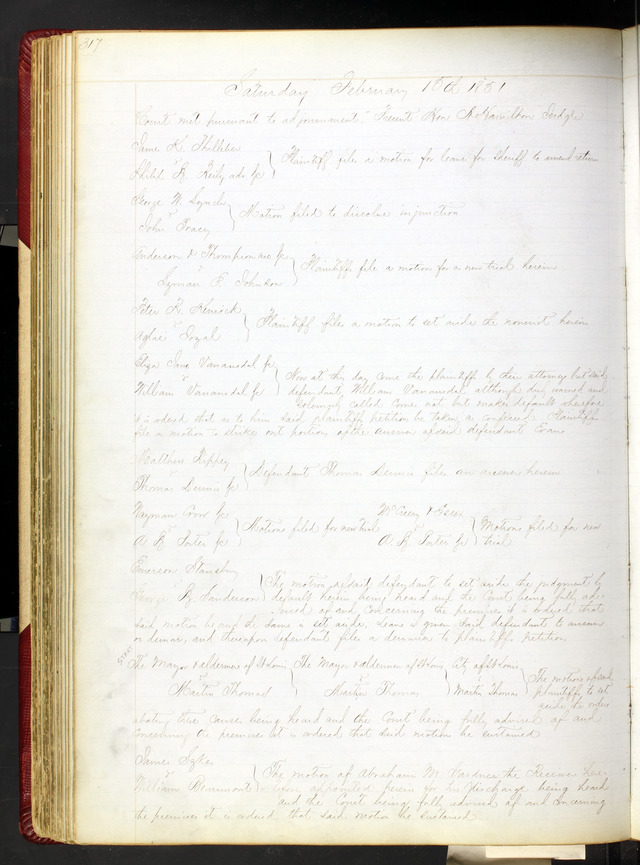 317
Saturday February 15th 1851
Court met pursuant to adjournment. Present Hon A Hamilton Judge
Plaintiff files a motion for leave for Sheriff to amend return
George W. Lynch
v
John Tracy
Motion filed to dissolve injunction
Anderson & Thompson use &c
v
Lyman F. Johnson
Plaintiffs file a motion for a new trial herein
Peter
v
Plaintiff files a motion to set aside the nonsuit herein
Eliza Jane Vanausdal &c
v
William Vanausdal &c
Now at this day come the plaintiffs by their attorney but said
defendant, William Vanausdal although duly warned and
solemnly called comes not but makes default wherefore
it is ordered that as to him said plaintiffs petition be taken as confessed. Plaintiffs
file a motion to strike out portions of the answer of said defendant Evans
Matthew Rippey
v
Thomas Dennis &c
Defendant Thomas Dennis files an answer herein
Wayman Crow &c
v
Motions filed for new trial
McCreery &
v
Motions filed for new
trial
Emerson Stansbury
v
George B. Sanderson
The motion of said defendant to set aside the judgment by
default herein being heard and the Court being fully ad-
vised of and concerning the premises it is ordered that
said motion be and the same is set aside. Leave is given said defendant to answer
or demur, and thereupon defendant files a demurrer to plaintiffs petition
The Mayor & aldermen of St Louis
v
Martin Thomas
The Mayor & aldermen of St Louis
v
Martin Thomas
City of St Louis
v
Martin Thomas
The motions of said
plaintiffs to set
aside the orders
abating these causes being heard and the Court being fully advised of and
concerning the premises it is ordered that said motions be sustained
James Sykes
v
William Beaumont
The motion of Abraham M. Gardner the Receiver here-
tofore appointed herein for his discharge being heard
and the Court being fully advised of and concerning
the premises it is ordered that said motion be sustained